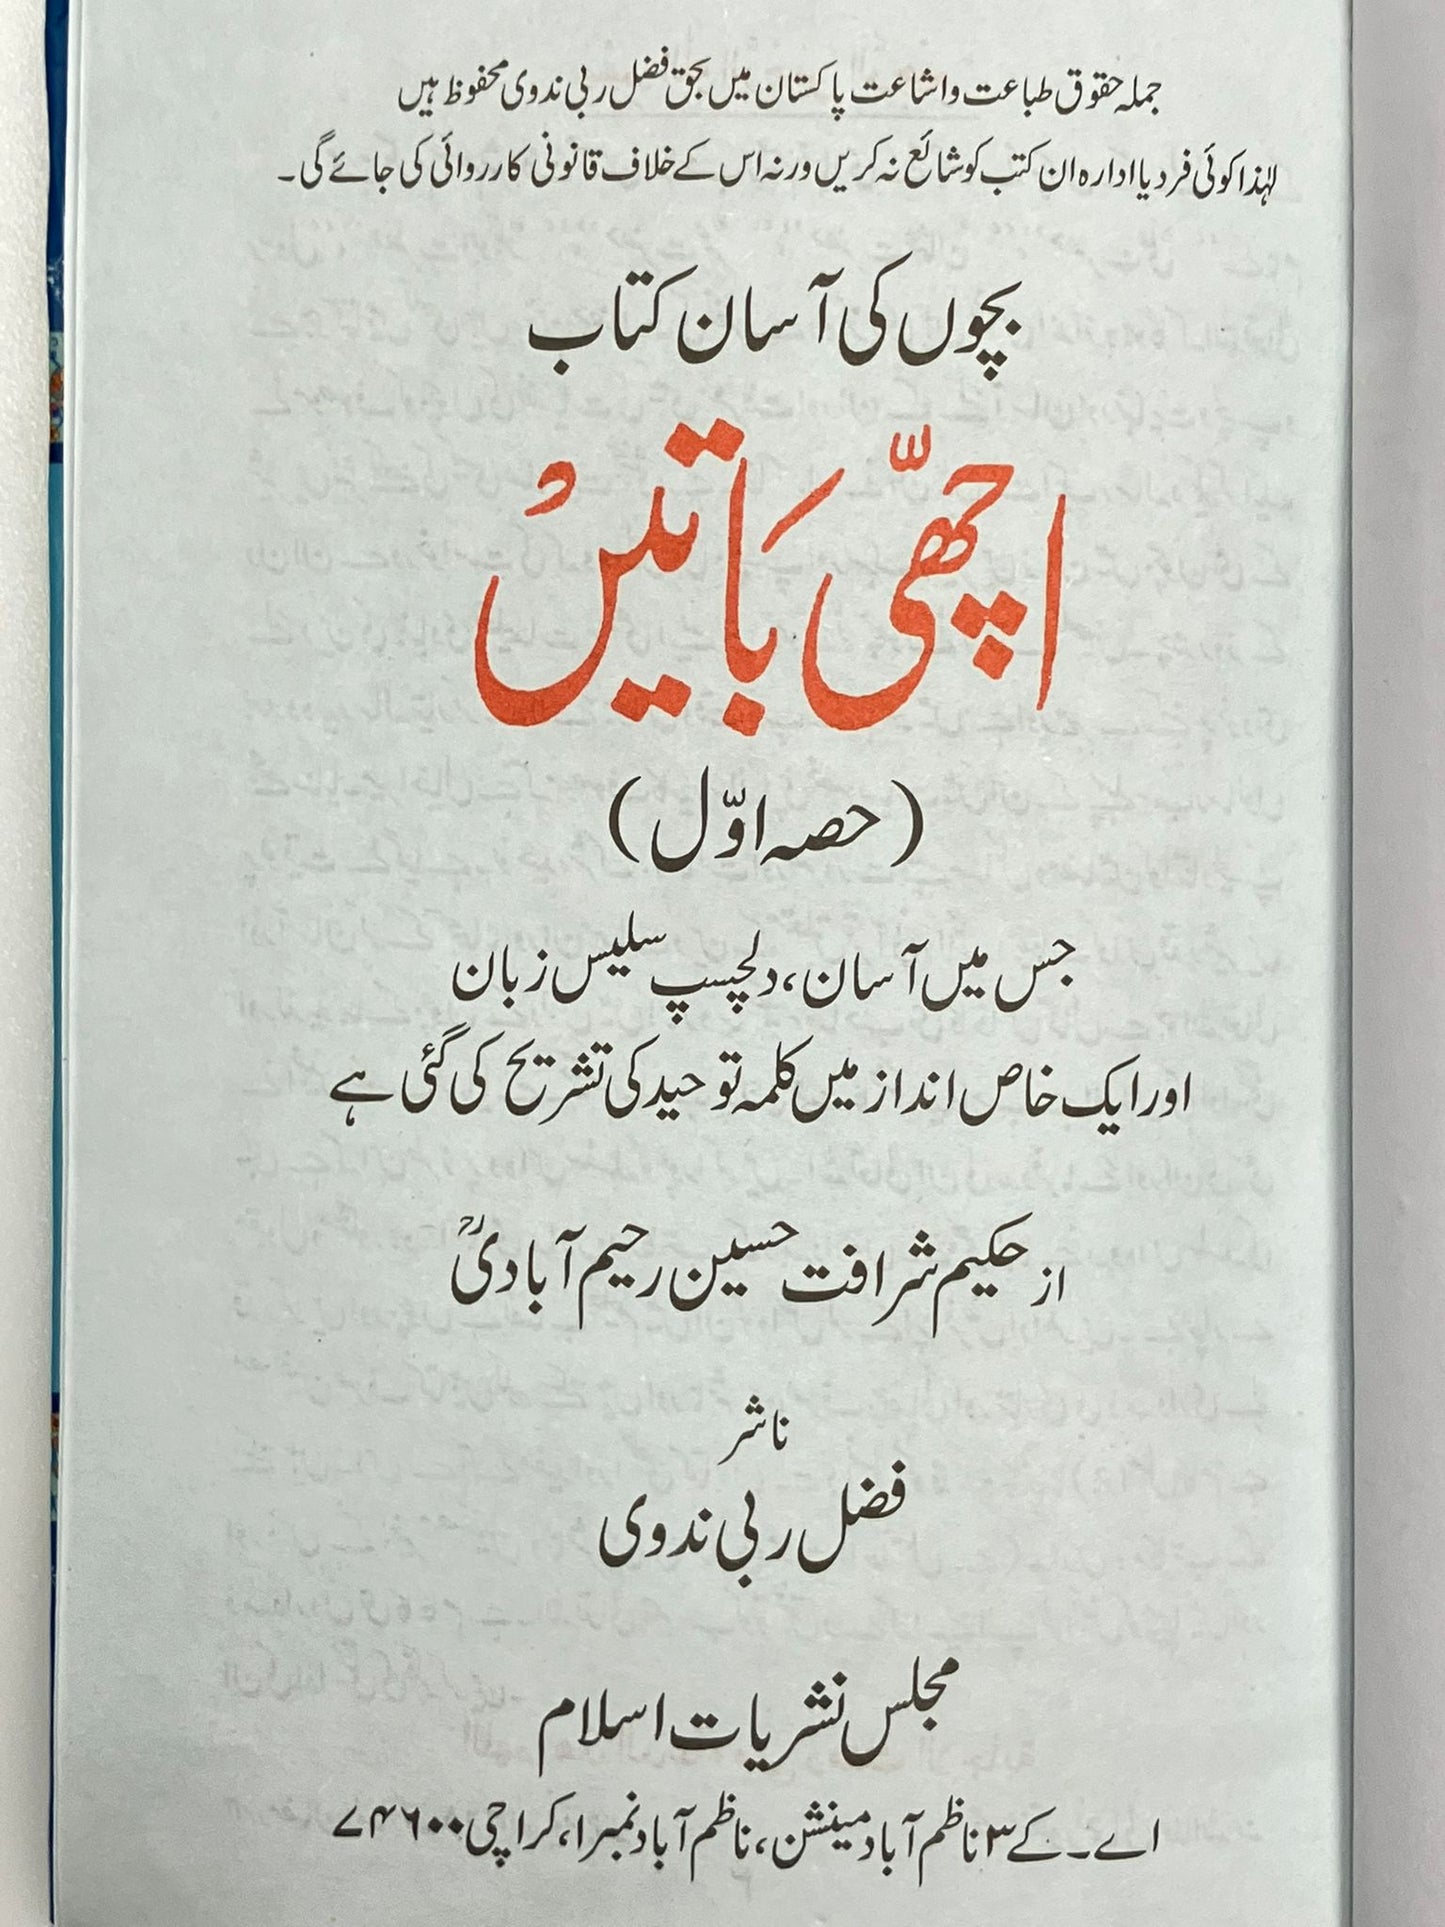 جملہ حقوق طباعت واشاعت پاکستان میں بحق فضل ربی ندوی محفوظ ہیں
لہٰذا کوئی فرد یا ادارہ ان کتب کو شائع نہ کریں ورنہ اس کے خلاف قانونی کارروائی کی جائے گی۔
بچوں کی آسان کتاب
اچھّی بَاتیںْ
(حصہ اوّل)
جس میں آسان، دلچسپ سلیس زبان
اور ایک خاص انداز میں کلمہ توحید کی تشریح کی گئی ہے
از حکیم شرافت حسین رحیم آبادیؒ
ناشر
فضل ربی ندوی
مجلس نشریات اسلام
اے۔کے ۳ ناظم آباد مینشن، ناظم آباد نمبر ا، کراچی ۷۴۶۰۰